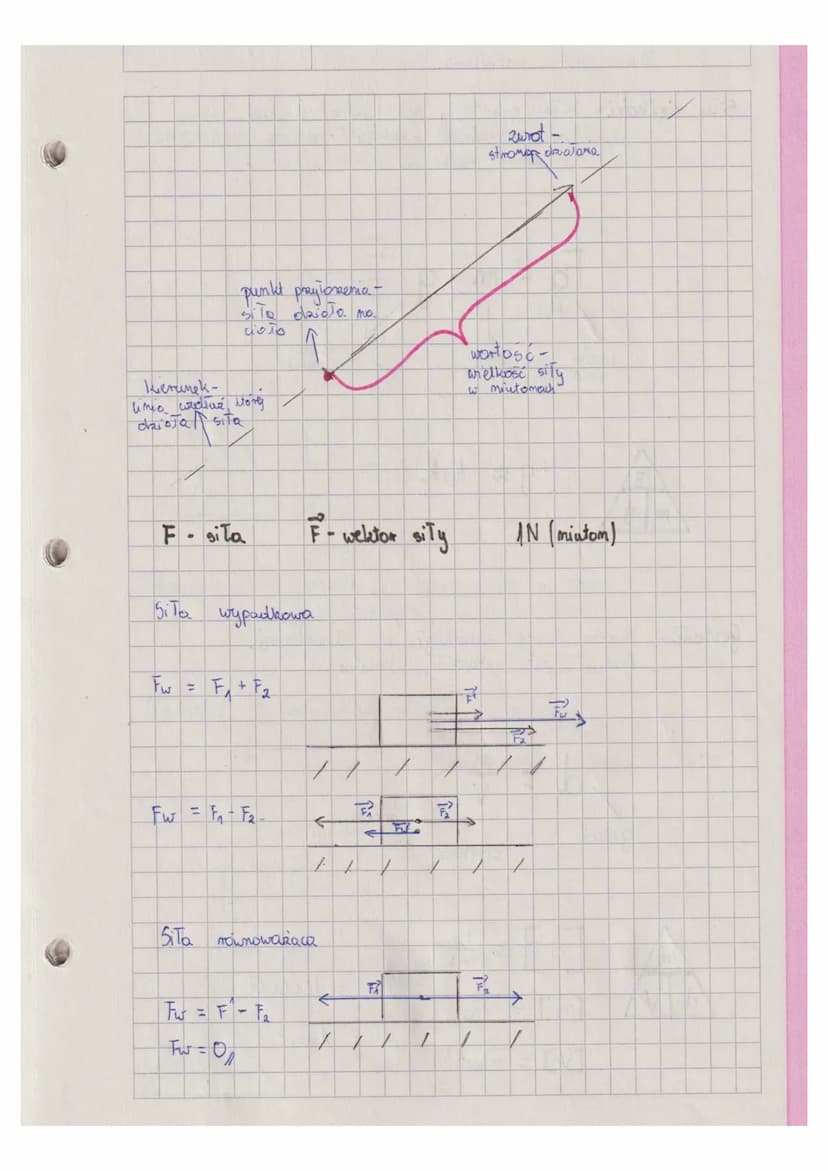 zwrot -
strona działania
punkt przyłożenia -
siła działa na
ciało
wartość -
wielkość siły
w niutonach
kierunek -
linia wzdłuż której
działa siła
F - siła F⃗ - wektor siły 1N (niuton)
Siła wypadkowa
Fw = F1 + F2
F⃗1
F⃗w
F⃗2
Fw = F1 - F2
F⃗1
F⃗2
F⃗w
Siła równoważąca
F⃗1
F⃗2
Fw = F1 - F2
Fw = 0